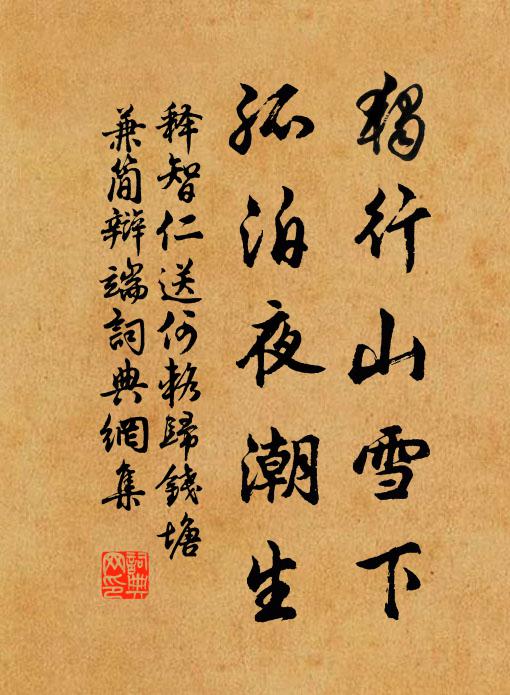 獨行山雪下
孤泊夜潮生
釋智仁送何輅歸錢塘
兼簡辯端詞典網集
詞典
网印